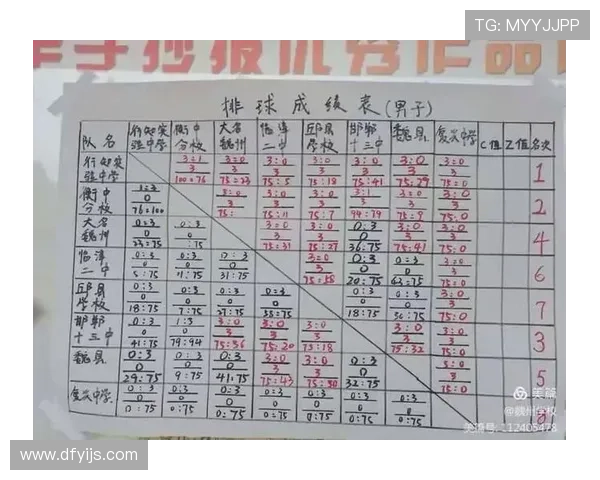 TG: MYYJJPP
年手抄报优秀作品
排球成绩表(男子)
队名 行知实验中学 衡中分校 大名魏州 临漳二中 邱县学校 邯郸十三中 魏县 复兴中学 C值 Z值 名次
行知实验中学 3:1 3 100=76 3:0 3 75=23 3:0 3 75:5 3:0 3 75:18 3:0 3 75:41 3:0 3 75=29 3:0 3 75=0 1
衡中分校 1:3 0 76=100 3:0 3 75: 3:0 3 75:11 3:0 3 75:7 3:1 3 94:79 3:0 3 75=9 3:0 3 75:0 2
大名魏州 0:3 0 23=75 0:3 :75 3:0 3 75=31 3:0 3 75:27 0:3 0 36:75 3:0 3 75:41 3:0 3 75:0 4
临漳二中 0:3 0 5:75 0:3 0 11:75 0:3 0 31:75 3:0 3 0:3 0 20:75 0:3 0 :75 3:0 3 75:0 6
邱县学校 0:3 0 18:75 0:3 0 7:75 0:3 0 27:75 0:3 0 :75 0:3 0 18:75 0:3 0 :75 3:0 3 75:0 7
邯郸十三中 0:3 0 41:75 1:3 0 79:94 3:0 3 75:36 3:0 3 75:20 3:0 3 75:18 3:0 3 75:32 3:0 3 75:0 3
魏县 0:3 0 29:75 0:3 0 9:75 0:3 0 41:75 3:0 3 75:43 3:0 3 0:3 0 32:75 3:0 3 75:0 5
复兴中学 0:3 0 0:75 0:3 0 0:75 0:3 0 0:75 0:3 0 0:75 0:3 0 0:75 0:3 0 0:75 0:3 0 0:75 8
美篇
@魏州学校
美篇号:112405478
www.dfyijs.com